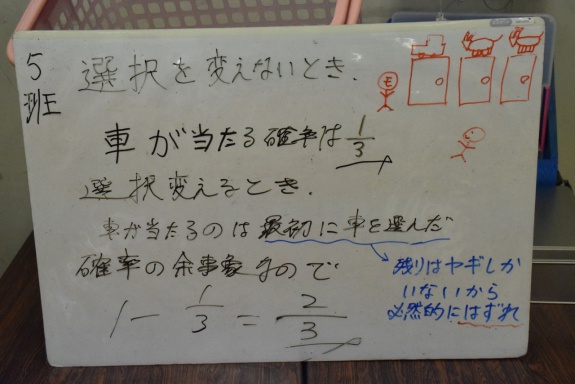 5班
選択を変えないとき.
モ
車が当たる確率は 1/3
選択変えるとき.
車が当たるのは最初に車を選んだ
確率の余事象なので
1 - 1/3 = 2/3
残りはヤギしか
いないから
必然的にはずれ